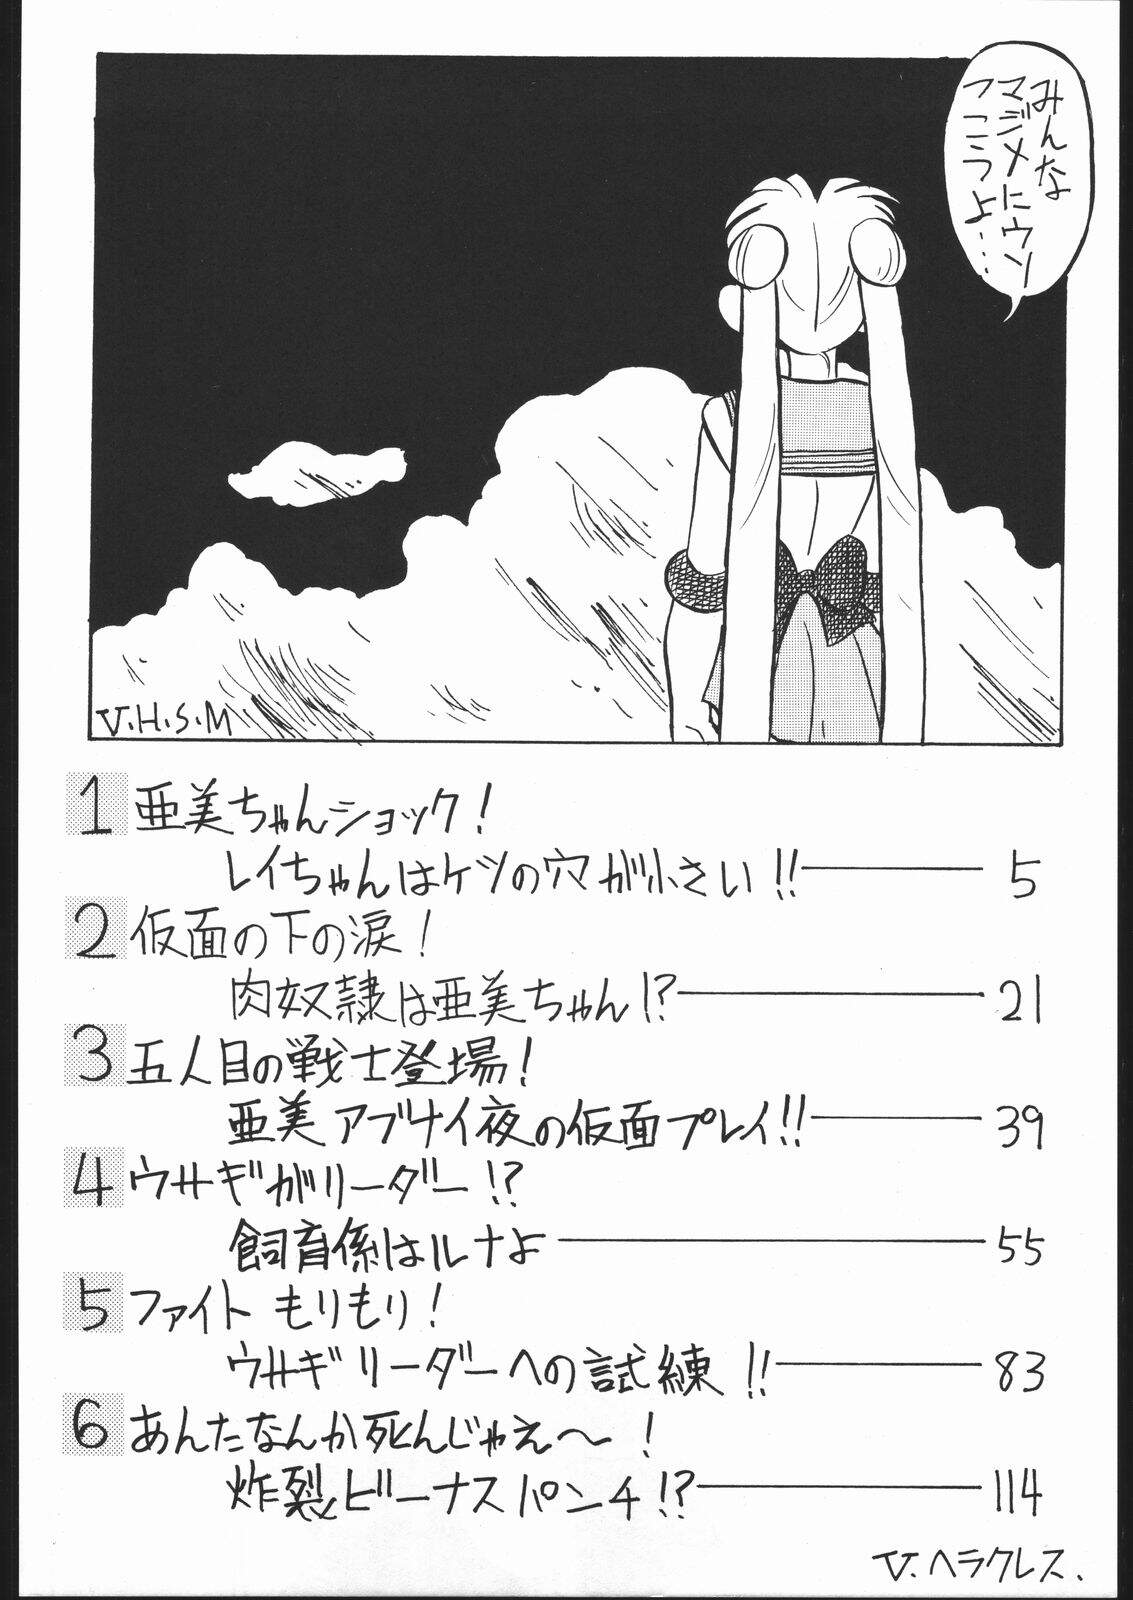 みんな
マジメにウソ
フこうよ…
V.H.S.M
1 亜美ちゃんショック!
レイちゃんはケツの穴が小さい!! 5
2 仮面の下の涙!
肉奴隷は亜美ちゃん!? 21
3 五人目の戦士登場!
亜美アブナイ夜の仮面プレイ!! 39
4 ウサギがリーダー!?
飼育係はルナよ 55
5 ファイト もりもり!
ウサギリーダーへの試練!! 83
6 あんたなんか死んじゃえ〜!
炸裂ビーナスパンチ!? 114
V.ヘラクレス.